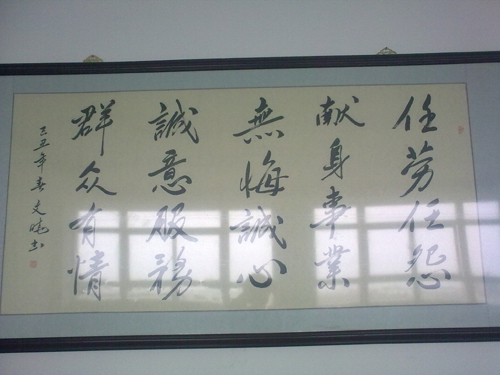 任劳任怨
献身事業
無悔誠心
誠意服務
群众有情
己丑年春文暁书